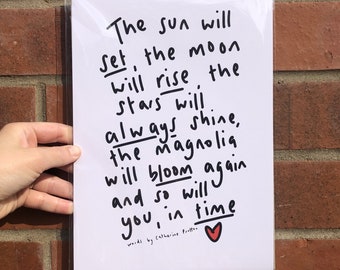 The sun will
set, the moon
will rise, the
stars will
always shine,
the magnolia
will bloom again
and so will
you, in time
words by Catherine